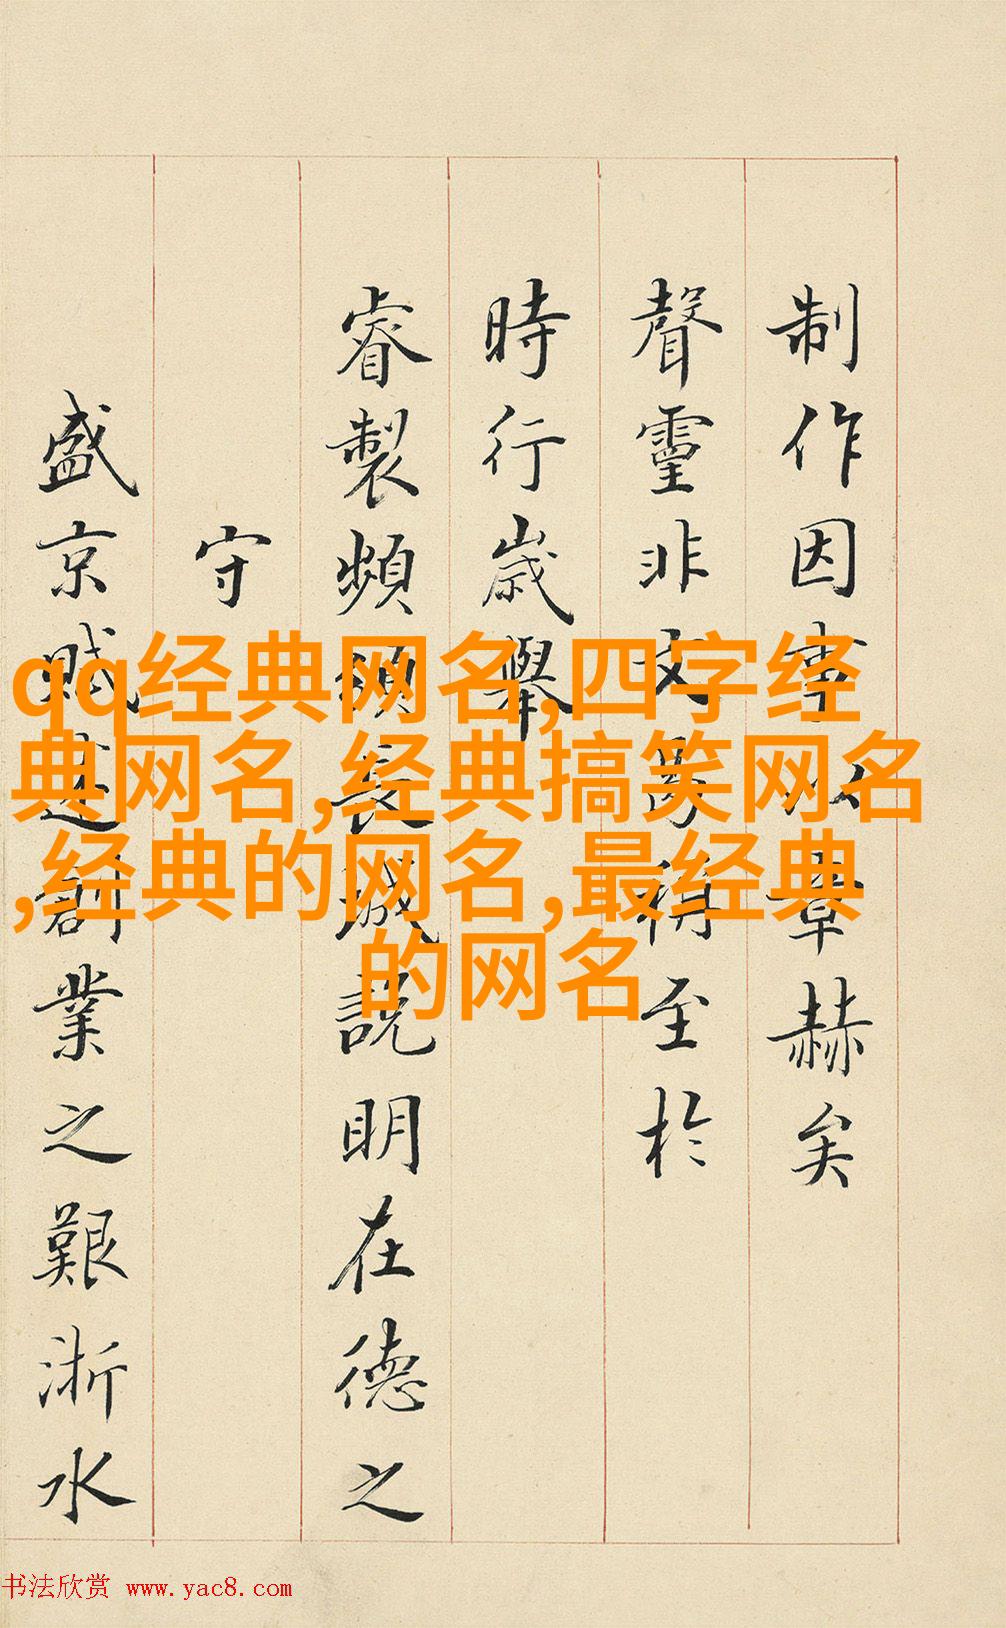 制作因事以章赫矣
聲靈非文曷稱至於
時行歲舉
睿製頻頒長城説明在德之
守
盛京賦述創業之艱浙水
qq经典网名,四字经
典网名,经典搞笑网名
,经典的网名,最经典
的网名
书法欣赏 www.yac8.com